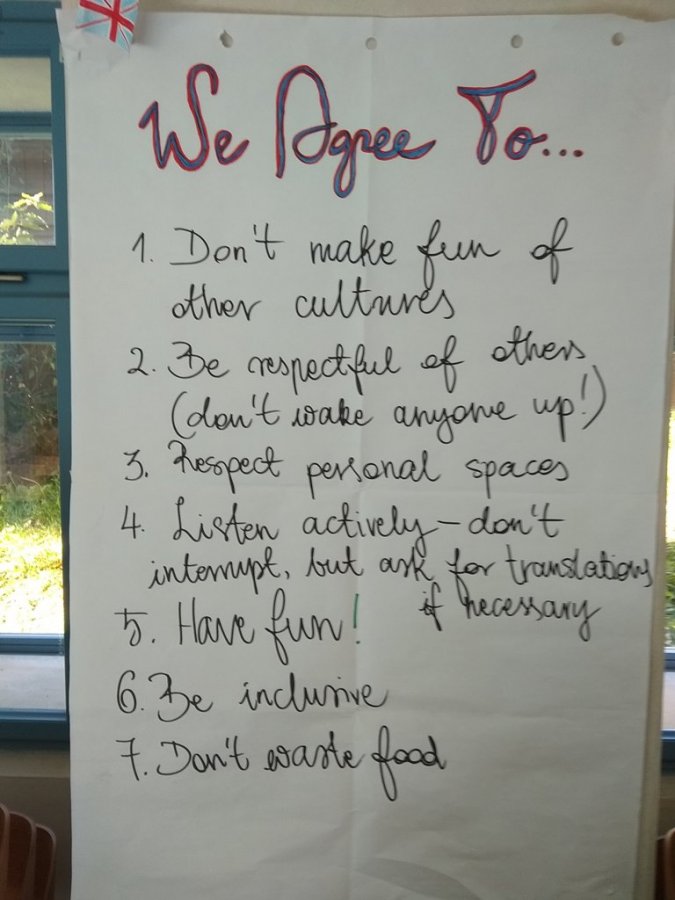 We Agree To...
1. Don't make fun of
other cultures
2. Be respectful of others
(don't wake anyone up!)
3. Respect personal spaces
4. Listen actively – don't
interrupt, but ask for translations
if necessary
5. Have fun!
6. Be inclusive
7. Don't waste food